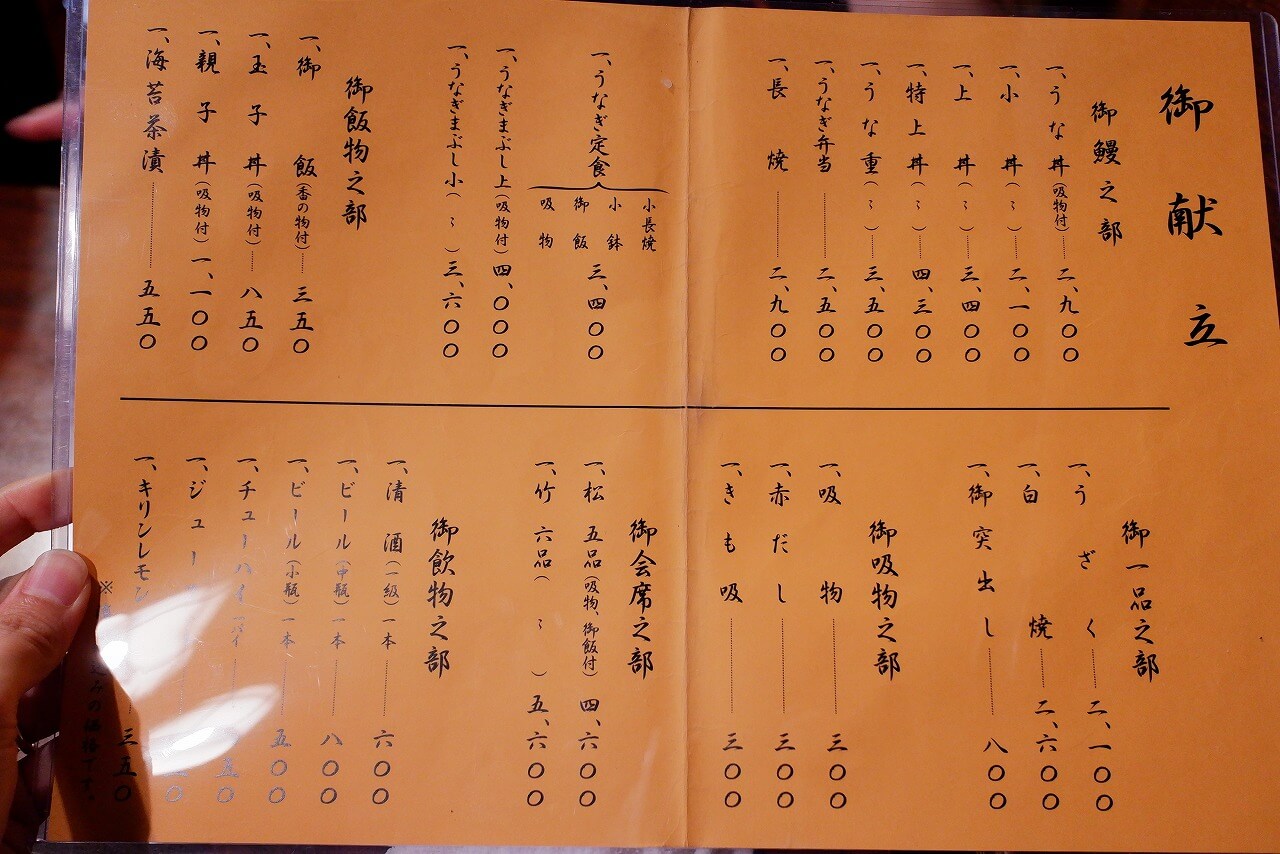 御献立
御鰻之部
一、うな丼(吸物付)二、九〇〇
一、小丼(〻)二、一〇〇
一、上丼(〻)三、四〇〇
一、特上丼(〻)四、三〇〇
一、うな重(〻)三、五〇〇
一、うなぎ弁当 二、五〇〇
一、長焼 二、九〇〇
一、うなぎ定食 三、四〇〇
小長焼
小鉢
御飯
吸物
一、うなぎまぶし上(吸物付)四、〇〇〇
一、うなぎまぶし小(〻)三、六〇〇
御飯物之部
一、御飯(香の物付)三五〇
一、玉子丼(吸物付)八五〇
一、親子丼(吸物付)一、一〇〇
一、海苔茶漬 五五〇
御一品之部
一、うざく 二、一〇〇
一、白焼 二、六〇〇
一、御突出し 八〇〇
御吸物之部
一、吸物 三〇〇
一、赤だし 三〇〇
一、きも吸 三〇〇
御会席之部
一、松 五品(吸物、御飯付)四、六〇〇
一、竹 六品(〻)五、六〇〇
御飲物之部
一、清酒(一級)一本 六〇〇
一、ビール(中瓶)一本 八〇〇
一、ビール(小瓶)一本 五〇〇
一、チューハイ 一パイ 五〇〇
一、ジュー 〇〇
一、キリンレモン 三五〇
※ みの価格です。